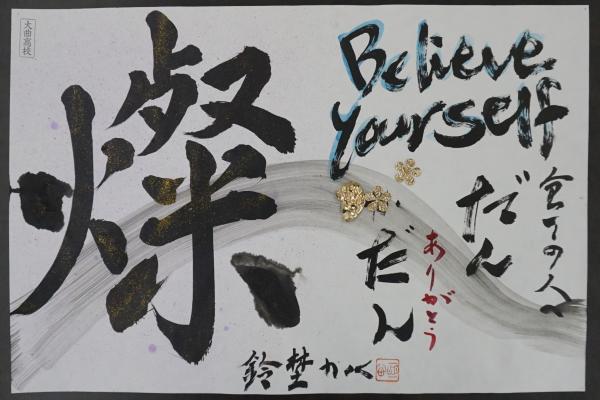 大曲高校
燦
Believe
Yourself
全ての人へ
だん
だん
ありがとう
鈴埜